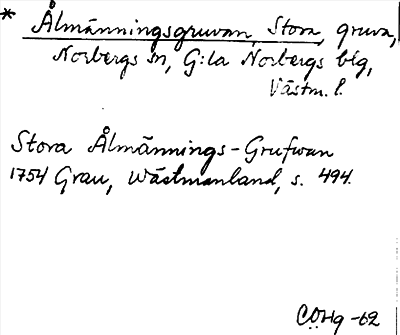 * Ålmänningsgruvan, Stora, gruva,
Norbergs sn, G:la Norbergs blg,
Västm. l.
Stora Ålmännings-Grufwan
1754 Grau, Wästmanland, s. 494.
CÖHg -62